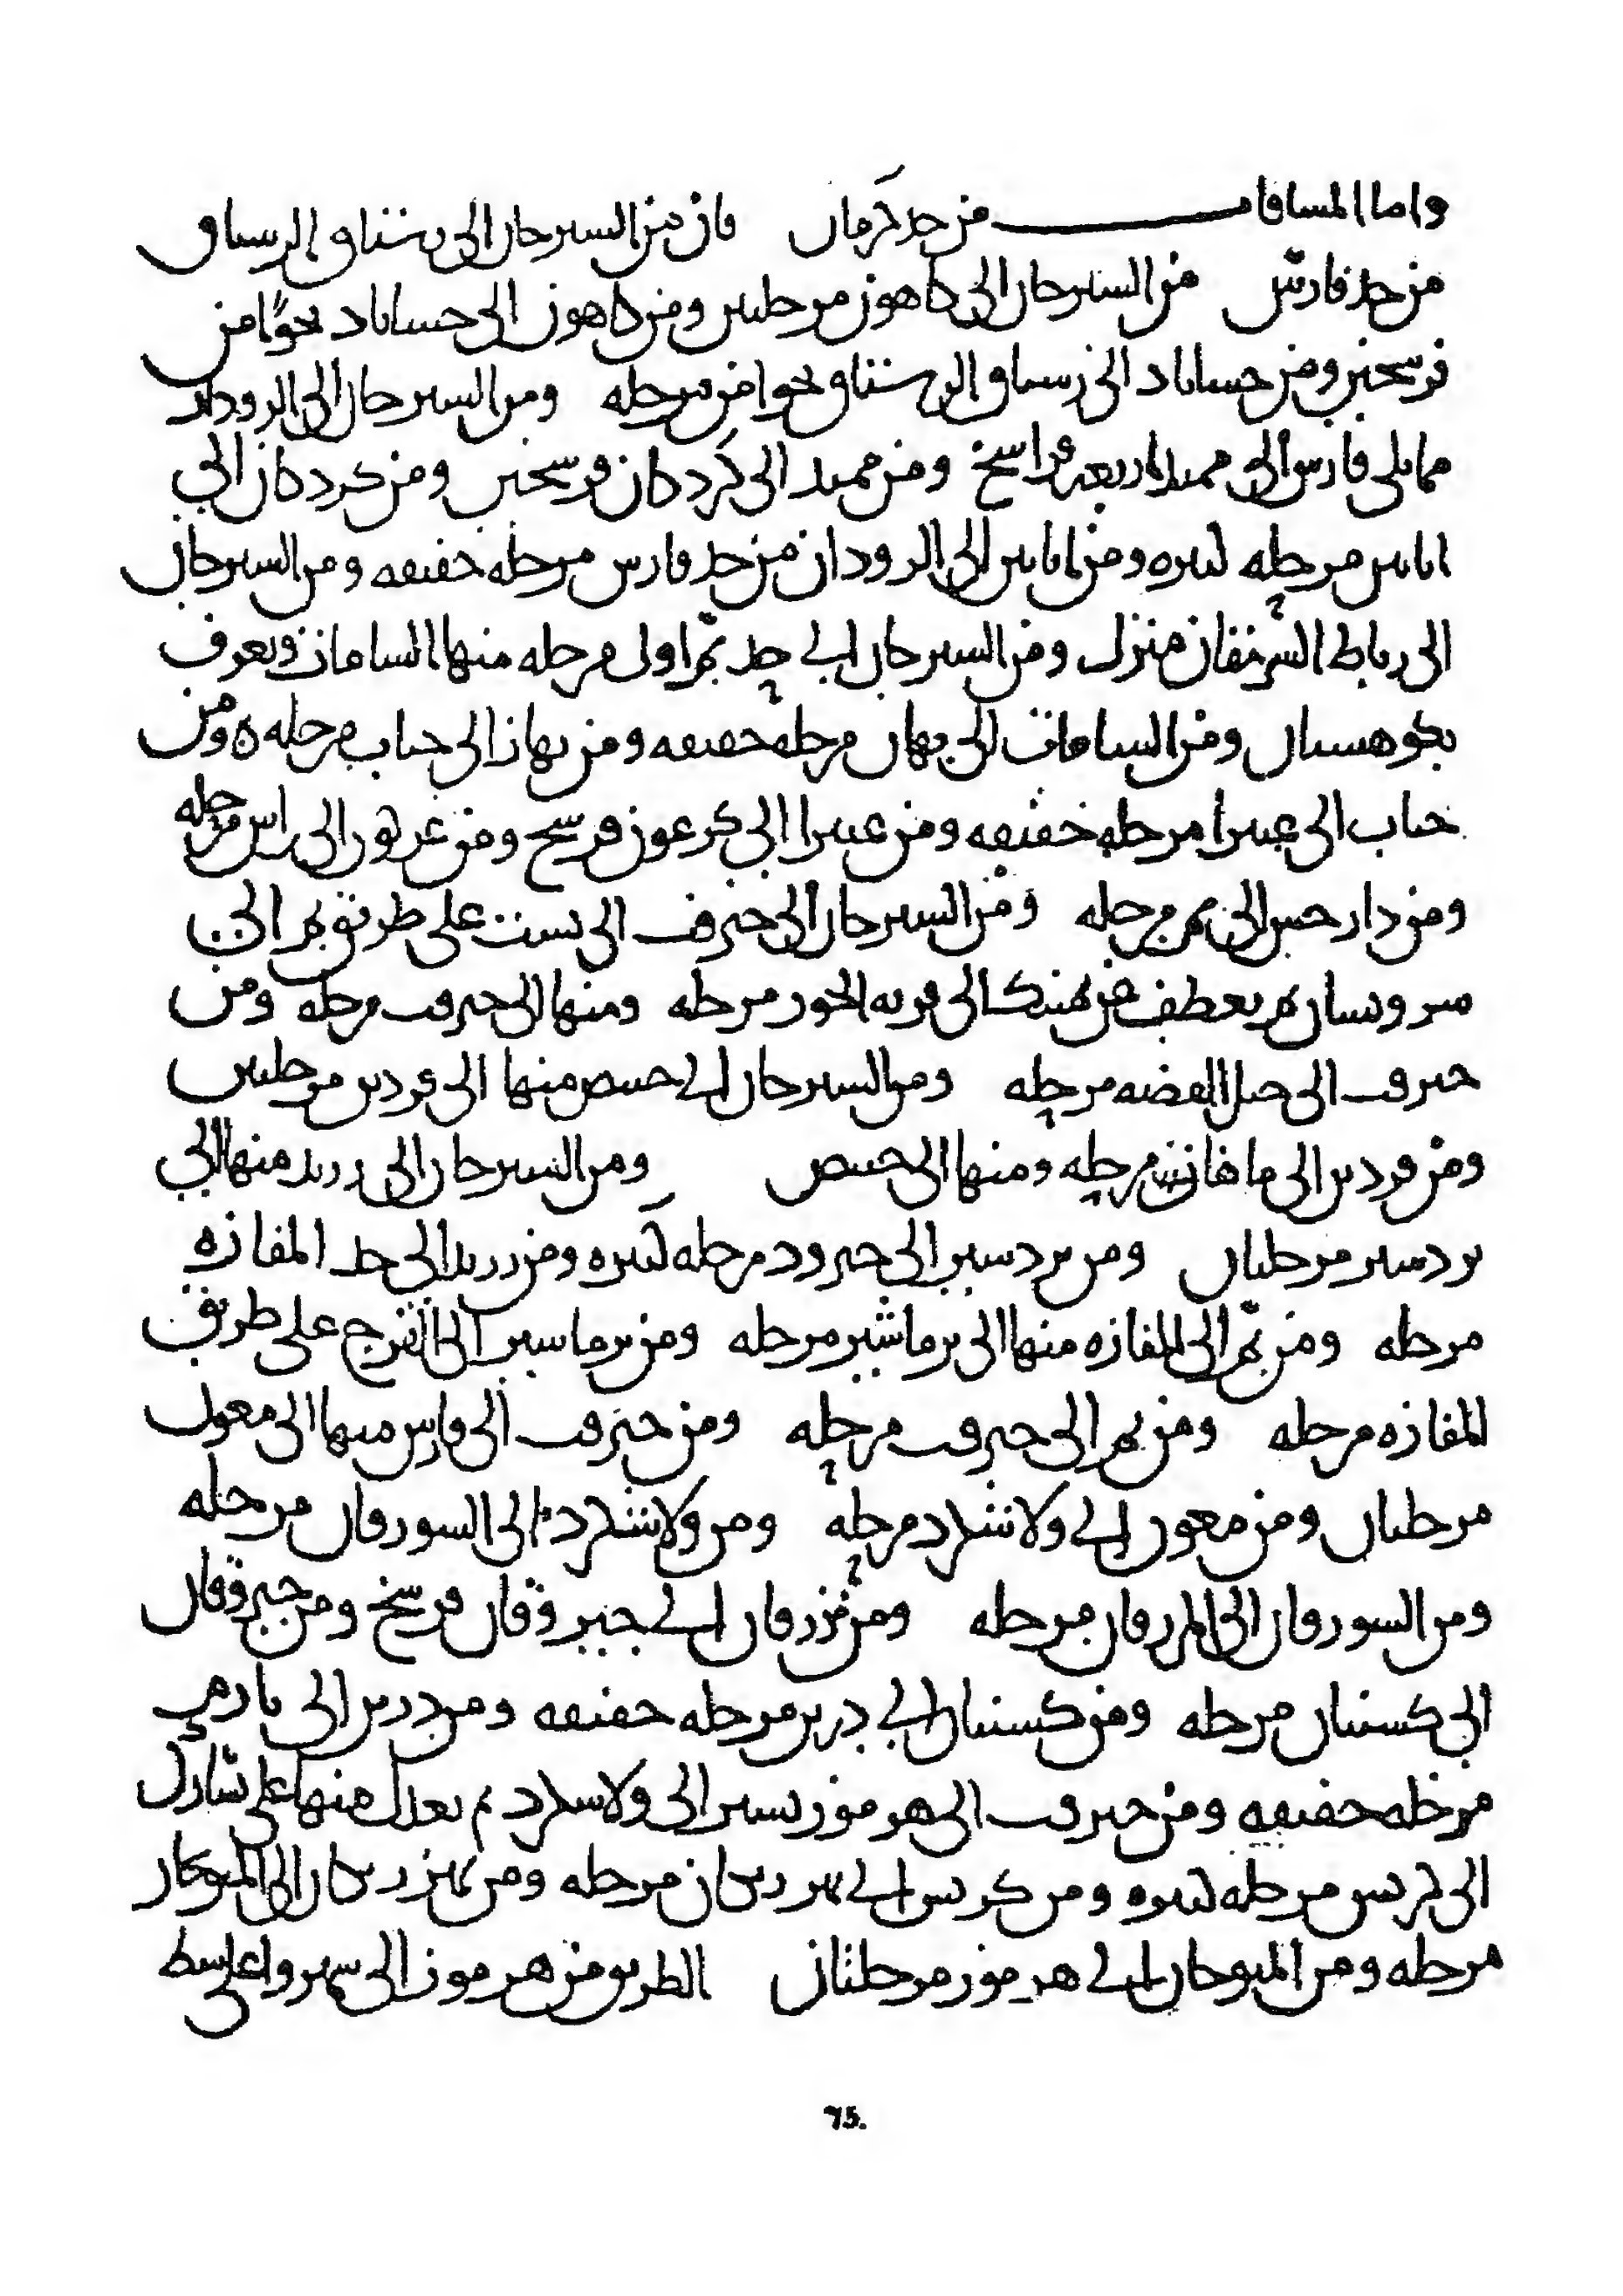 واما المسافات من حد كرمان فان من السيرجان الى رستاق الرستاق
من حد فارس من السيرجان الى كاهون مرحلتين ومن كاهون الى حساباد نحوا من
فرسخين ومن حساباد الى رستاق الرستاق نحوا من مرحله ومن السيرجان الى الرودان
مما يلي فارس الى بيمند اربعه فراسخ ومن بيمند الى كردكان فرسخين ومن كردكان الى
اناس مرحله كبيره ومن اناس الى الرودان من حد فارس مرحله خفيفه ومن السيرجان
الى رباط السرمقان منزل ومن السيرجان الى حد بم اول مرحله منها الشامات ويعرف
بكوهستان ومن الشامات الى بهار مرحله خفيفه ومن بهار الى خناب مرحله ومن
خناب الى غبيرا مرحله خفيفه ومن غبيرا الى كوغون فرسخ ومن كوغون الى راين مرحله
ومن دارجين الى بم مرحله ومن السيرجان الى جيرفت الى تسير على طريق بم الى
سروستان ثم يعطف من هناك الى قريه الجوز مرحله ومنها الى جيرفت مرحله ومن
جيرفت الى جبل الفضه مرحله ومن السيرجان الى خبيص منها الى فردين مرحلتين
ومن فردين الى ماهان مرحله ومنها الى خبيص ومن السيرجان الى زرند منها الى
بردسير مرحلتان ومن بردسير الى جنزرود مرحله كبيره ومن زرند الى حد المفازه
مرحله ومن بم الى المفازه منها الى نرماشير مرحله ومن نرماشير الى الفرج على طريق
المفازه مرحله ومن بم الى جيرفت مرحله ومن جيرفت الى فارس منها الى مغون
مرحلتان ومن مغون الى ولاشكرد مرحله ومن ولاشكرد الى السورقان مرحله
ومن السورقان الى المرزقان مرحله ومن مرزقان الى جيروقان فرسخ ومن جيروقان
الى كستبان مرحله ومن كستبان الى درين مرحله خفيفه ومن درين الى تارم
مرحله خفيفه ومن جيرفت الى هرموز تسير الى ولاشكرد ثم يعدل منها على يسارك
الى كومين مرحله كبيره ومن كومين الى نهر زنكان مرحله ومن نهر زنكان الى المنوجان
مرحله ومن المنوجان الى هرموز مرحلتان الطريق من هرموز الى سهروا على شط
75.